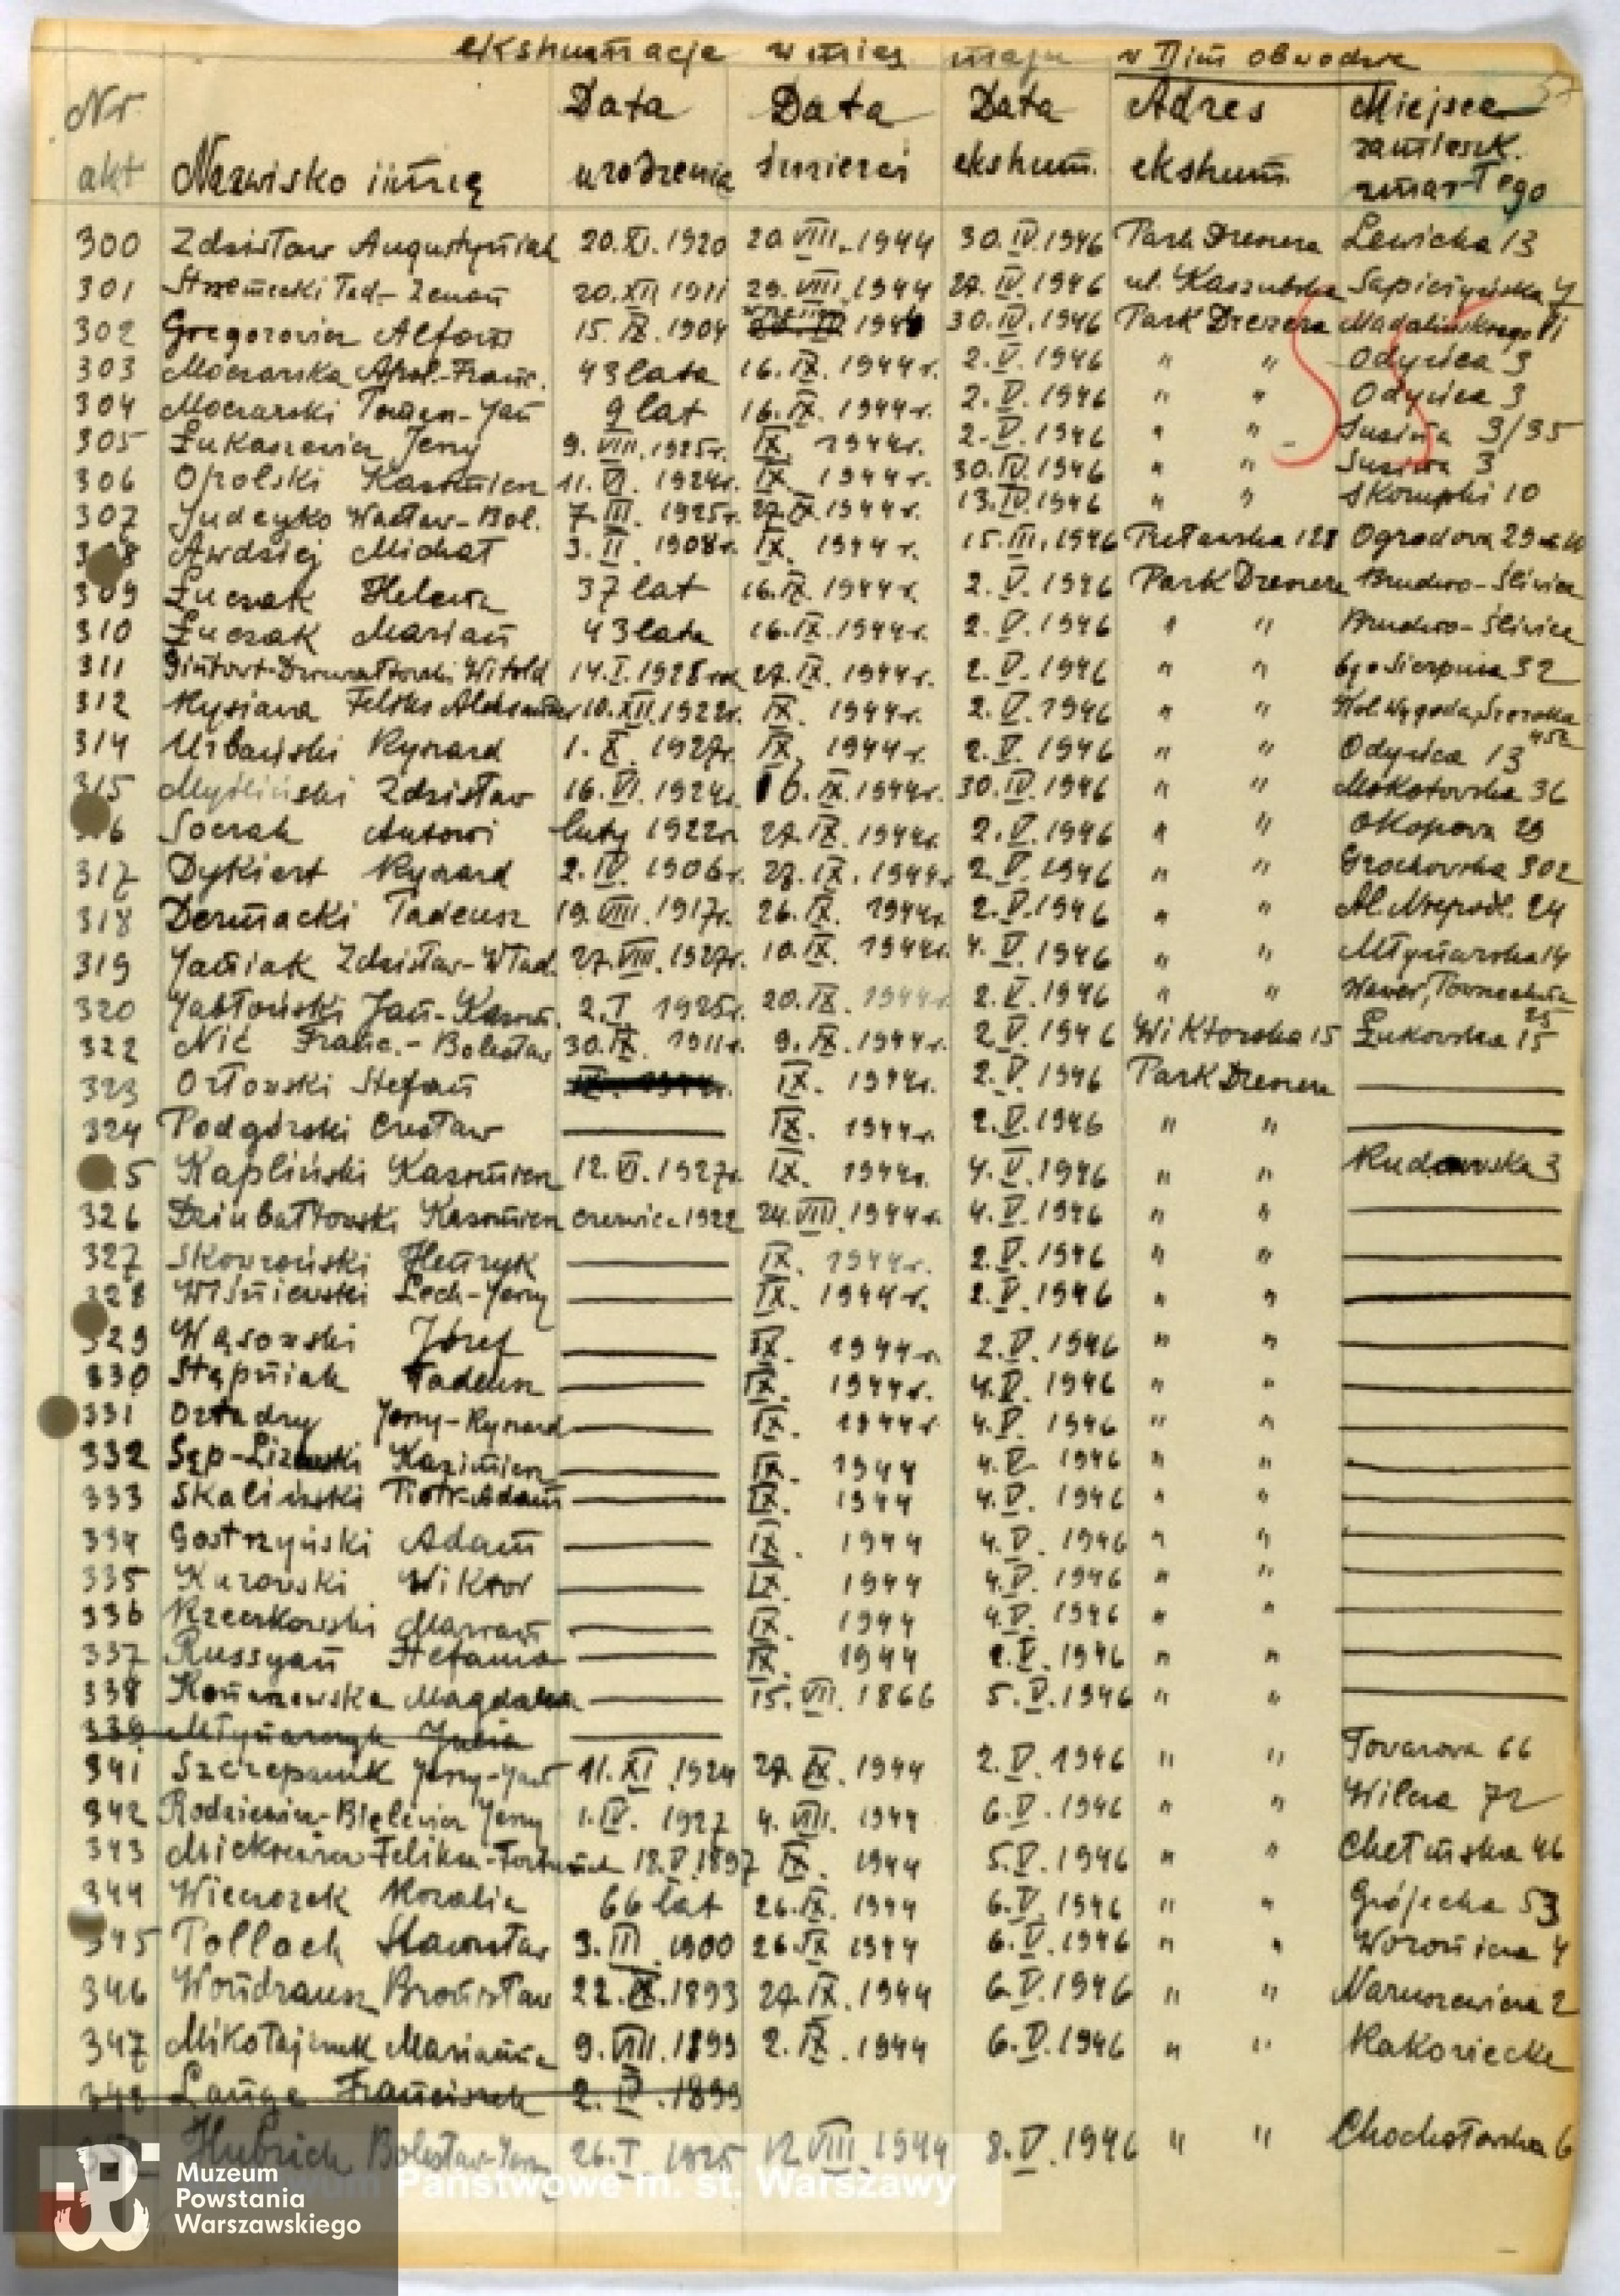 ekshumacje w mies maju w II im obwodzie
57
Nr. akt Nazwisko i imię Data urodzenia Data śmierci Data ekshum. Adres ekshum. Miejsce zamieszk. zmarłego
300 Zdzisław Augustyniak 20.XI.1920 20.VIII.1944 30.IV.1946 Park Dreszera Lewicka 13
301 Strzemecki Tad-Zenon 20.XII 1911 29.VIII.1944 27.IV.1946 ul. Kaszubska Sapieżyńska 4
302 Gregorowicz Alfons 15.IX.1904 1944 30.IV.1946 Park Dreszera Madalińskiego 11
303 Moczarska Apol.-Franc. 43 lata 16.IX.1944r. 2.V.1946 " " Odyńca 3
304 Moczarski Roman-Jan 9 lat 16.IX.1944r. 2.V.1946 " " Odyńca 3
305 Łukaszewicz Jerzy 9.VIII.1925r. IX. 1944r. 2.V.1946 " " Suzina 3/35
306 Opolski Kazimierz 11.VI.1924r. IX. 1944r. 30.IV.1946 " " Suzina 3
307 Judeyko Wacław-Bol. 7.III.1925r. 27.IX.1944r. 13.IV.1946 " " Skorupki 10
308 Awdziej Michał 3.II.1908r. IX. 1944r. 15.III.1946 Puławska 128 Ogrodowa 29
309 Łuczak Helena 37 lat 16.IX.1944r. 2.V.1946 Park Dreszera Brudno-Śliwice
310 Łuczak Marian 43 lata 16.IX.1944r. 2.V.1946 " " Brudno-Śliwice
311 Gintowt-Dziewałtowski Witold 14.I.1928 27.IX.1944r. 2.V.1946 " " 6go Sierpnia 32
312 Feliks Aleksander 10.XII.1922r. IX. 1944r. 2.V.1946 " " Kol. Wygoda, Szeroka
314 Urbański Ryszard 1.X.1927r. IX. 1944r. 2.V.1946 " " Odyńca 13
315 Myśliński Zdzisław 16.VI.1924r. 16.IX.1944r. 30.IV.1946 " " Mokotowska 36
316 Soczak Antoni luty 1922r. 27.IX.1944r. 2.V.1946 " " Okopowa 29
317 Dykiert Ryszard 2.IV.1906r. 27.IX.1944r. 2.V.1946 " " Grochowska 302
318 Dermacki Tadeusz 19.VIII.1917r. 26.IX.1944r. 2.V.1946 " " Al. Niepodl. 24
319 Janiak Zdzisław-Wład. 27.VIII.1927r. 10.IX.1944r. 4.V.1946 " " Młynarska 14
320 Jabłoński Jan-Kazim. 2.I 1925r. 20.IX.1944r. 2.V.1946 " " Wawer, Powszechna 25
322 Nić Franc.-Bolesław 30.IX.1911r. 9.IX.1944r. 2.V.1946 Wiktorska 15 Łukowska 15
323 Orłowski Stefan IX. 1944r. 2.V.1946 Park Dreszera
324 Podgórski Czesław IX. 1944r. 2.V.1946 " "
325 Kapliński Kazimierz 12.VI.1927r. IX. 1944r. 4.V.1946 " " Rudawska 3
326 Dziubałtowski Kazimierz czerwiec 1922 24.VIII.1944r. 4.V.1946 " "
327 Skowroński Henryk IX. 1944r. 2.V.1946 " "
328 Wiśniewski Lech-Jerzy IX. 1944r. 2.V.1946 " "
329 Wąsowski Józef IX. 1944r. 2.V.1946 " "
330 Stępniak Tadeusz IX. 1944r. 4.V.1946 " "
331 Jerzy-Ryszard IX. 1944r 4.V.1946 " "
332 Sęp- Kazimierz IX. 1944 4.V.1946 " "
333 Skaliński Piotr-Adam IX. 1944 4.V.1946 " "
334 Gostrzyński Adam IX. 1944 4.V.1946 " "
335 Kurowski Wiktor IX. 1944 4.V.1946 " "
336 Rzeczkowski Marian IX. 1944 4.V.1946 " "
337 Russyan Stefania IX. 1944 2.V.1946 " "
338 Konarzewska Magdalena 15.VII.1866 5.V.1946 " "
339 Młynarczyk Julia
341 Szczepanik Jerzy-Jan 11.XI.1924 27.IX.1944 2.V.1946 " " Towarowa 66
342 Rodziewicz-Bielewicz Jerzy 1.IV.1927 4.VIII.1944 6.V.1946 " " Wilcza 72
343 Mickiewicz Feliksa-Fortunata 18.V.1897 IX. 1944 5.V.1946 " " Chełmska 46
344 Wieczorek Rozalia 66 lat 26.IX.1944 6.V.1946 " " Grójecka 53
345 Pollack Stanisław 3.III.1900 26.IX 1944 6.V.1946 " " Woronicza 4
346 Bronisław 22.IX.1893 27.IX.1944 6.V.1946 " " Naruszewicza 2
347 Mikołajczuk Marianna 9.VIII.1899 2.IX.1944 6.V.1946 " " Rakowiecka
348 Lange Franciszek 2.IV.1899
Hubrich Bolesław-Jerzy 26.I 1925 12.VIII.1944 8.V.1946 " " Chochołowska 6
Muzeum
Powstania
Warszawskiego
Państwowe m. st. Warszawy